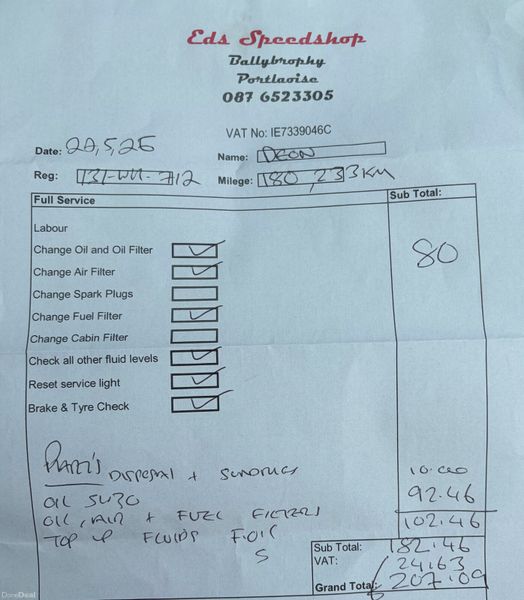 Eds Speedshop
Ballybrophy
Portlaoise
087 6523305
VAT No: IE7339046C
Date: 20,5,25
Name: DEON
Reg: 131-WH-712
Milege: 180,233KM
Full Service
Sub Total:
Labour
Change Oil and Oil Filter
80
Change Air Filter
Change Spark Plugs
Change Fuel Filter
Change Cabin Filter
Check all other fluid levels
Reset service light
Brake & Tyre Check
PARTS DISPOSAL + SUNDRIES
OIL 5W30 92.46
OIL, AIR + FUEL FILTERS 102.46
TOP UP FLUIDS
Sub Total: 182.46
VAT: 24.63
Grand Total: 207.09
DoneDeal